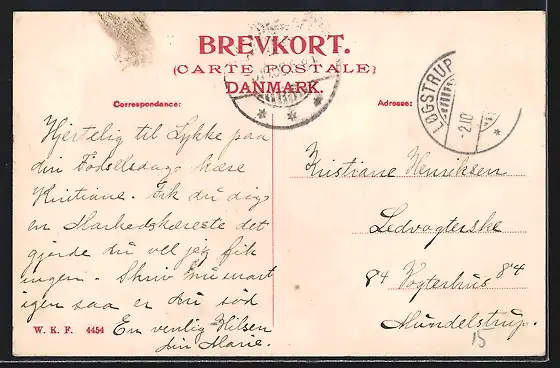 BREVKORT.
(CARTE POSTALE)
DANMARK.
Correspondance:
Adresse:
LØGSTRUP
-2.10
Hjertelig til Lykke paa
din Födselsdag kære
Kristiane. Fik du dig
en Markedskæreste det
gjorde du vel jeg fik
ingen. Skriv nu snart
igen saa er du söd
En venlig Hilsen
din Marie.
W. K. F. 4454
Kristiane Henriksen
Ledvogterske
84 Vogterhus 84
Mundelstrup.
15